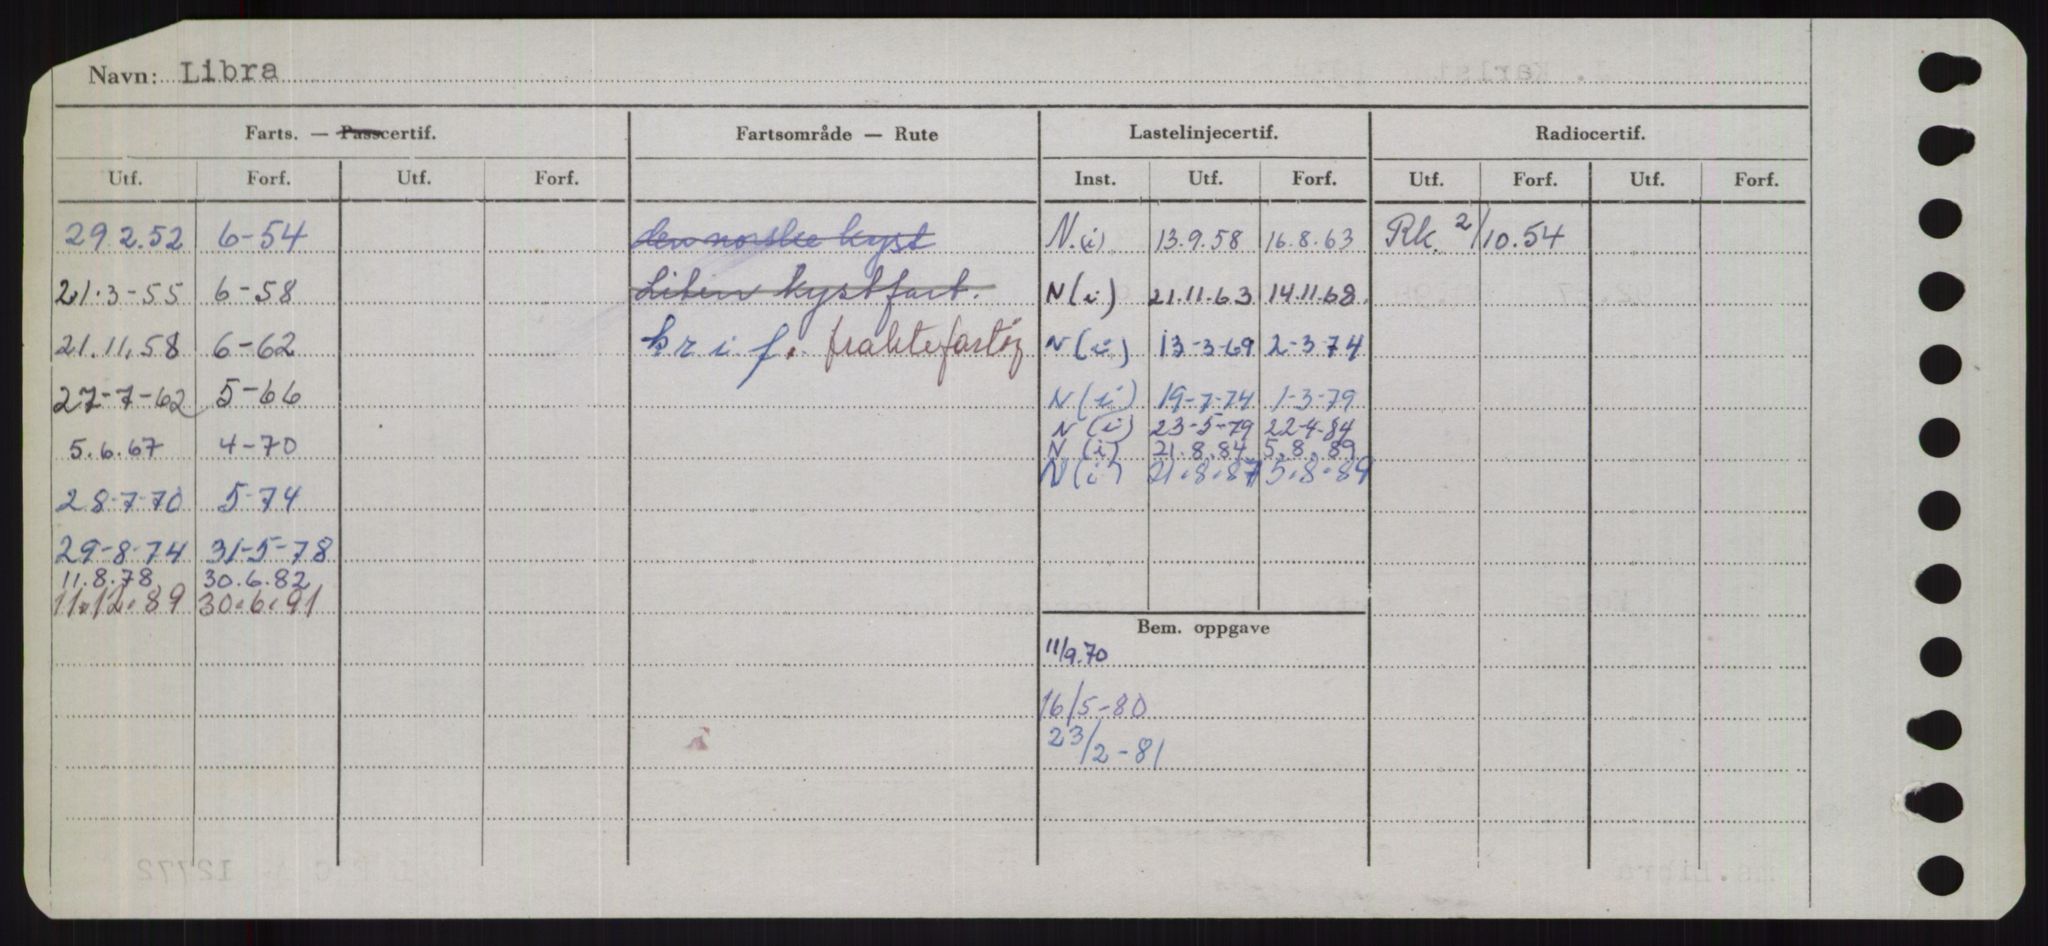 Navn: Libra
Farts. — Passcertif. Fartsområde — Rute Lastelinjecertif. Radiocertif.
Utf. Forf. Utf. Forf. Inst. Utf. Forf. Utf. Forf. Utf. Forf.
29.2.52 6-54 den norske kyst N.(i) 13.9.58 16.8.63 Rk. 2/10.54
21.3-55 6-58 Liten kystfart. N(i) 21.11.63 14.11.68.
21.11.58 6-62 kr i f. fraktefartøy N(i) 13-3-69 2-3-74
27-7-62 5-66 N(i) 19-7-74 1-3-79
N(i) 23-5-79 22-4-84
5.6.67 4-70 N(i) 21.8.84 5.8.89
N(i) 21.8.87 5.8.89
28-7-70 5-74
29-8-74 31-5-78
11.8.78 30.6.82
11.12.89 30.6.91
Bem. oppgave
11/9.70
16/5-80
23/2-81
12772
ms.Libra